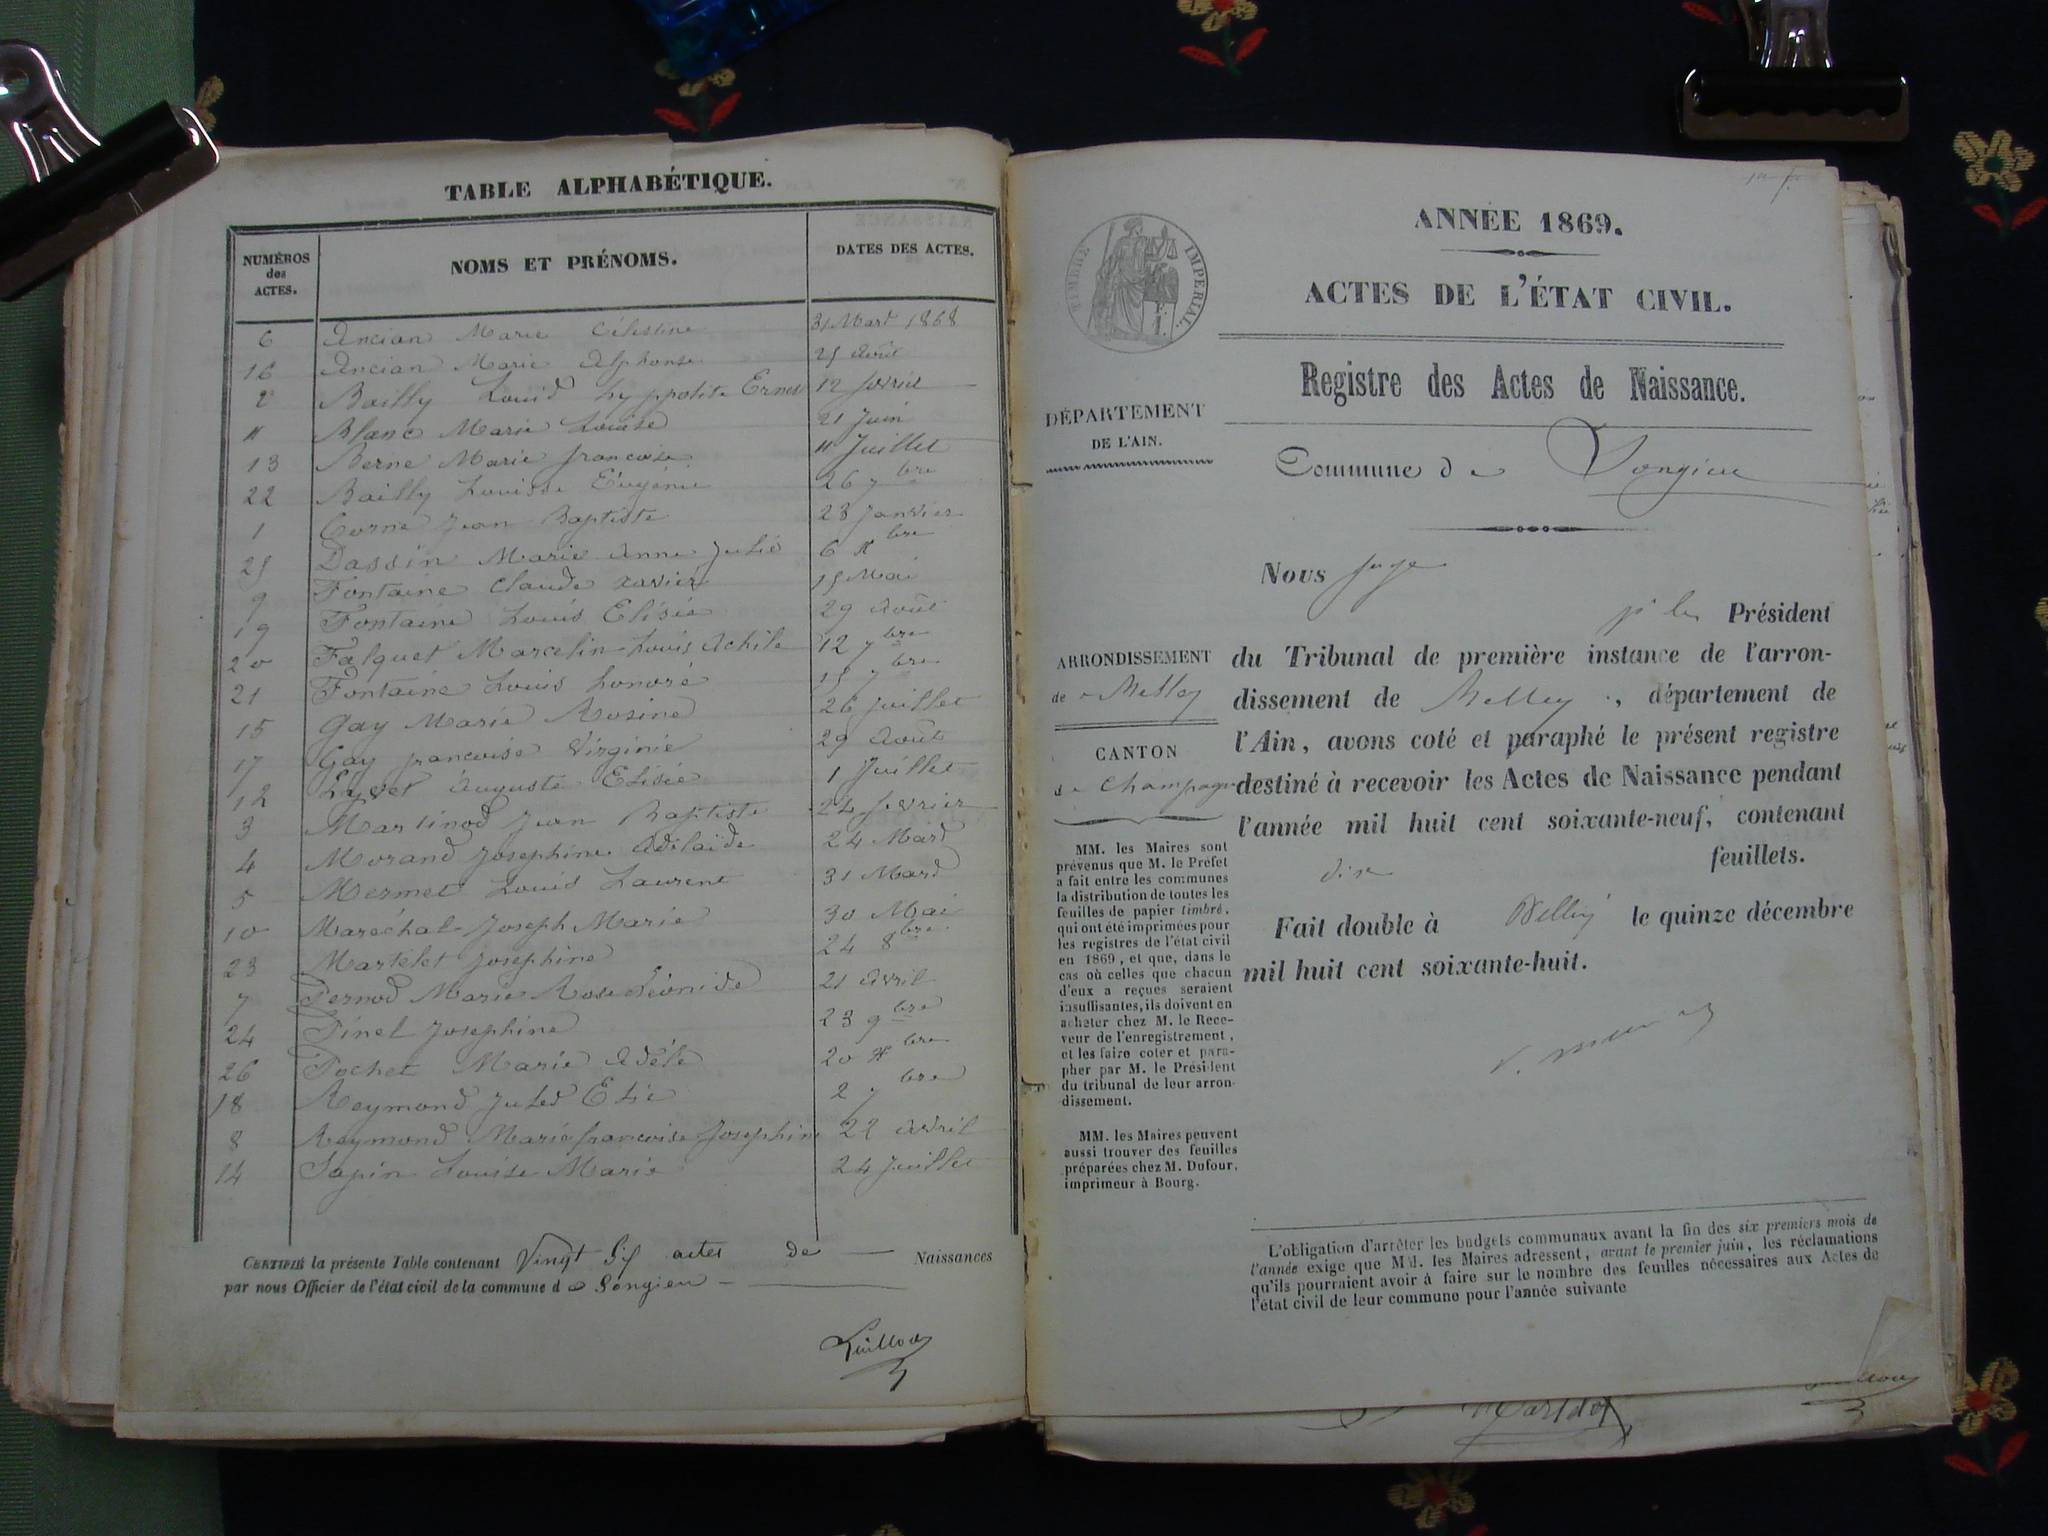 TABLE ALPHABÉTIQUE.
NUMÉROS des ACTES. NOMS ET PRÉNOMS. DATES DES ACTES.
6 Ancian Marie Célestine 31 Mars 1868
16 Ancian Marie Alphonse 25 Août
2 Bailly Louis hyppolite Ernest 12 février
11 Blanc Marie Louise 21 Juin
13 Berne Marie françoise 11 Juillet
22 Bailly Louise Eugénie 26 7bre
1 Corne Jean Baptiste 23 Janvier
25 Dassin Marie Anne Julie 6 Xbre
9 Fontaine Claude xavier 15 Mai
19 Fontaine Louis Elisée 29 Août
20 Falquet Marcelin Louis Achile 12 7bre
21 Fontaine Louis honoré 15 7bre
15 Gay Marie Rosine 26 Juillet
17 Gay francoise Virginie 29 Août
12 Livet Auguste Elisée 1 Juillet
3 Martinod Jean Baptiste 24 février
4 Morand Josephine Adélaïde 24 Mars
5 Mermet Louis Laurent 31 Mars
10 Maréchal Joseph Marie 30 Mai
23 Martelet Josephine 24 8bre
7 Pernod Marie Rose Léonide 21 Avril
24 Pinel Josephine 23 9bre
26 Pochet Marie Adèle 20 Xbre
18 Reymond Jules Elie 2 7bre
8 Reymond Marie françoise Josephine 22 Avril
14 Sapin Louise Marie 24 Juillet
CERTIFIÉ la présente Table contenant Vingt Six actes de Naissances
par nous Officier de l'état civil de la commune de Songieu
TIMBRE IMPERIAL.
ANNÉE 1869.
ACTES DE L'ÉTAT CIVIL.
Registre des Actes de Naissance.
DÉPARTEMENT
DE L'AIN.
Commune de Songieu
Nous Juge
Président
ARRONDISSEMENT
de Belley
CANTON
de Champagne
du Tribunal de première instance de l'arron-
dissement de Belley, département de
l'Ain, avons coté et paraphé le présent registre
destiné à recevoir les Actes de Naissance pendant
l'année mil huit cent soixante-neuf, contenant
dix feuillets.
Fait double à Belley le quinze décembre
mil huit cent soixante-huit.
MM. les Maires sont
prévenus que M. le Préfet
a fait entre les communes
la distribution de toutes les
feuilles de papier timbré,
qui ont été imprimées pour
les registres de l'état civil
en 1869, et que, dans le
cas où celles que chacun
d'eux a reçues seraient
insuffisantes, ils doivent en
acheter chez M. le Rece-
veur de l'enregistrement,
et les faire coter et para-
pher par M. le Président
du tribunal de leur arron-
dissement.
MM. les Maires peuvent
aussi trouver des feuilles
préparées chez M. Dufour,
imprimeur à Bourg.
L'obligation d'arrêter les budgets communaux avant la fin des six premiers mois de
l'année exige que MM. les Maires adressent, avant le premier juin, les réclamations
qu'ils pourraient avoir à faire sur le nombre des feuilles nécessaires aux Actes de
l'état civil de leur commune pour l'année suivante